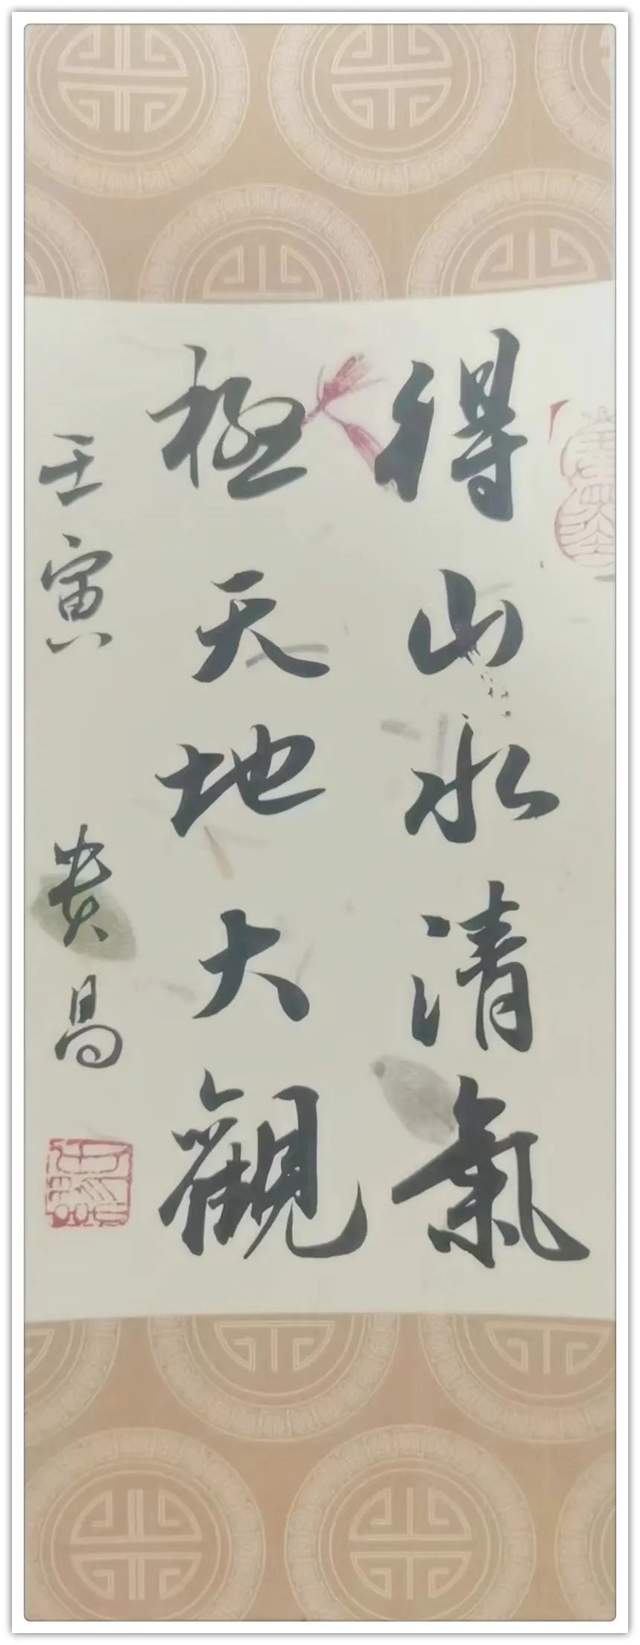 得山水清氣
極天地大觀
壬寅 贵昌